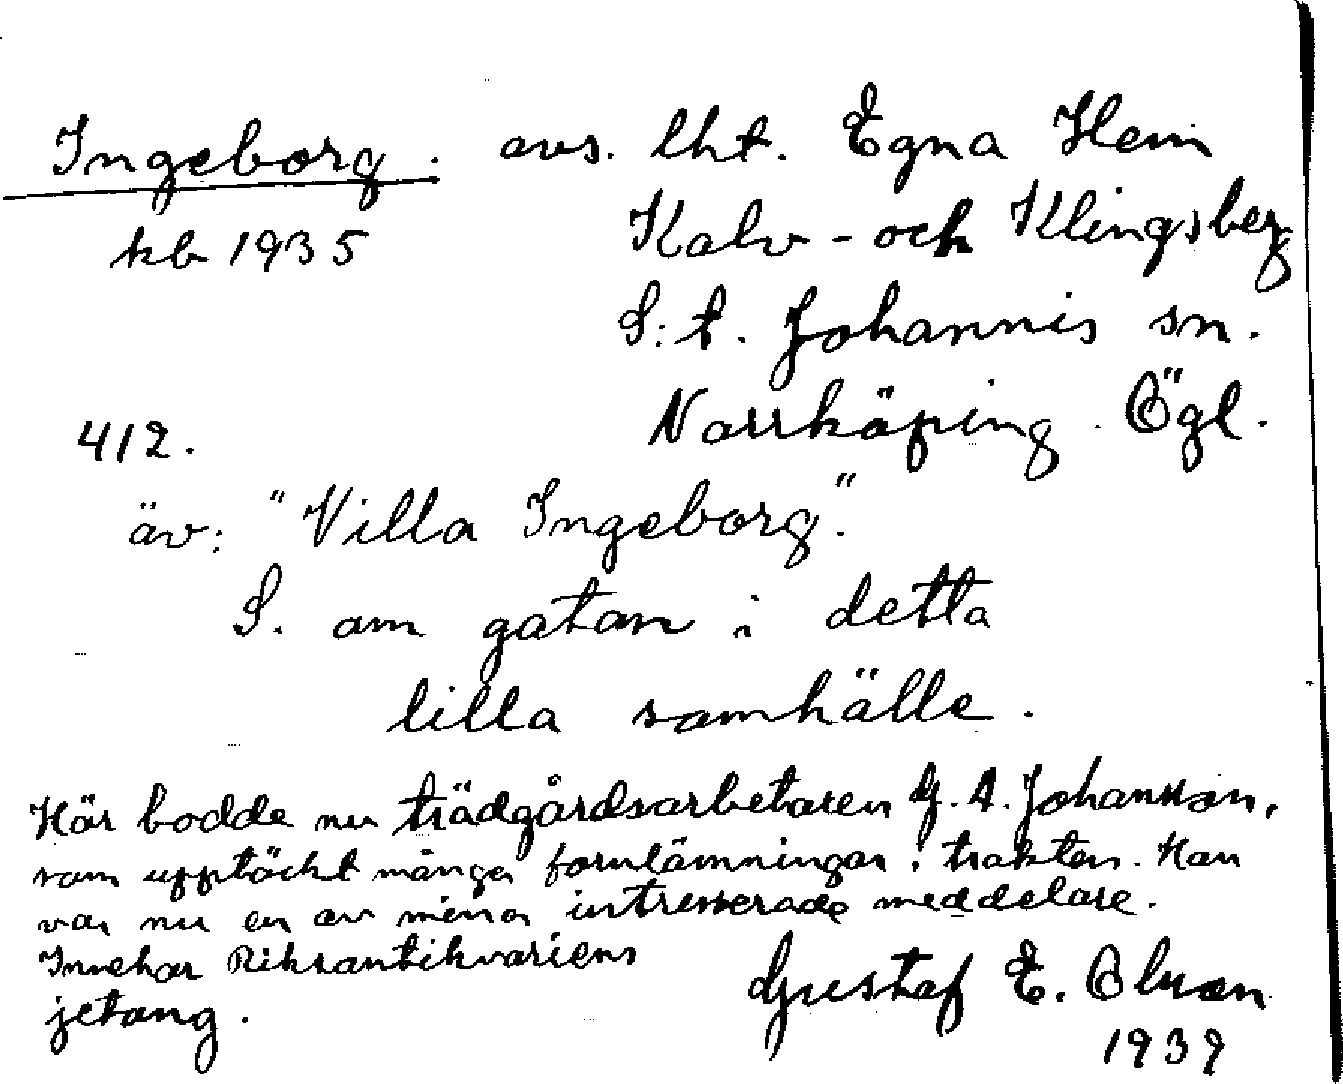 Ingeborg. avs. lht. Egna Hem
kb 1935 Kalv- och Klingsberg
S:t. Johannis sn.
412. Norrköping Ögl.
äv: "Villa Ingeborg".
S. om gatan i detta
lilla samhälle.
Här bodde nu trädgårdsarbetaren G. A. Johansson,
som upptäckt många fornlämningar i trakten. Han
var nu en av mina intresserade meddelare.
Innehar Riksantikvariens
jetong. Gustaf E. Olsson
1939